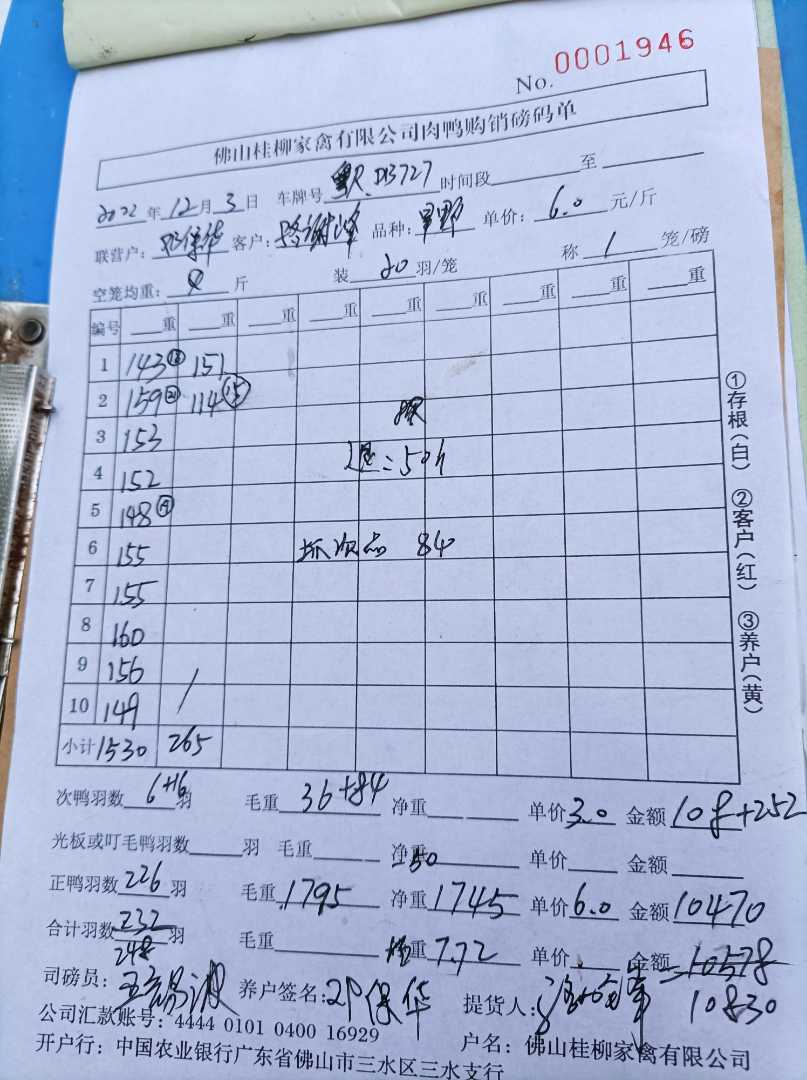 No. 0001946
佛山桂柳家禽有限公司肉鸭购销磅码单
2022 年 12 月 3 日 车牌号 DB727 时间段 至
联营户: 邓保华 客户: 品种: 单价: 6.0 元/斤
空笼均重: 斤 装 20 羽/笼 称 1 笼/磅
编号 重 重 重 重 重 重 重 重 重
1 143 ⑱ 151
2 159 ㉑ 114 ⑮
3 153
4 152 退: 50斤
5 148 ⑲
6 155 抓次品 84
7 155
8 160
9 156
10 149
小计 1530 265
次鸭羽数 6+16 羽 毛重 36+84 净重 单价 3.0 金额 108+252
光板或叮毛鸭羽数 羽 毛重 净重 单价 金额
-50
正鸭羽数 226 羽 毛重 1795 净重 1745 单价 6.0 金额 10470
合计羽数 232 羽 毛重 重 7.72 单价 金额 10578
248
10830
司磅员: 养户签名: 邓保华 提货人:
公司汇款账号: 4444 0101 0400 16929 户名: 佛山桂柳家禽有限公司
开户行: 中国农业银行广东省佛山市三水区三水支行
①存根(白) ②客户(红) ③养户(黄)